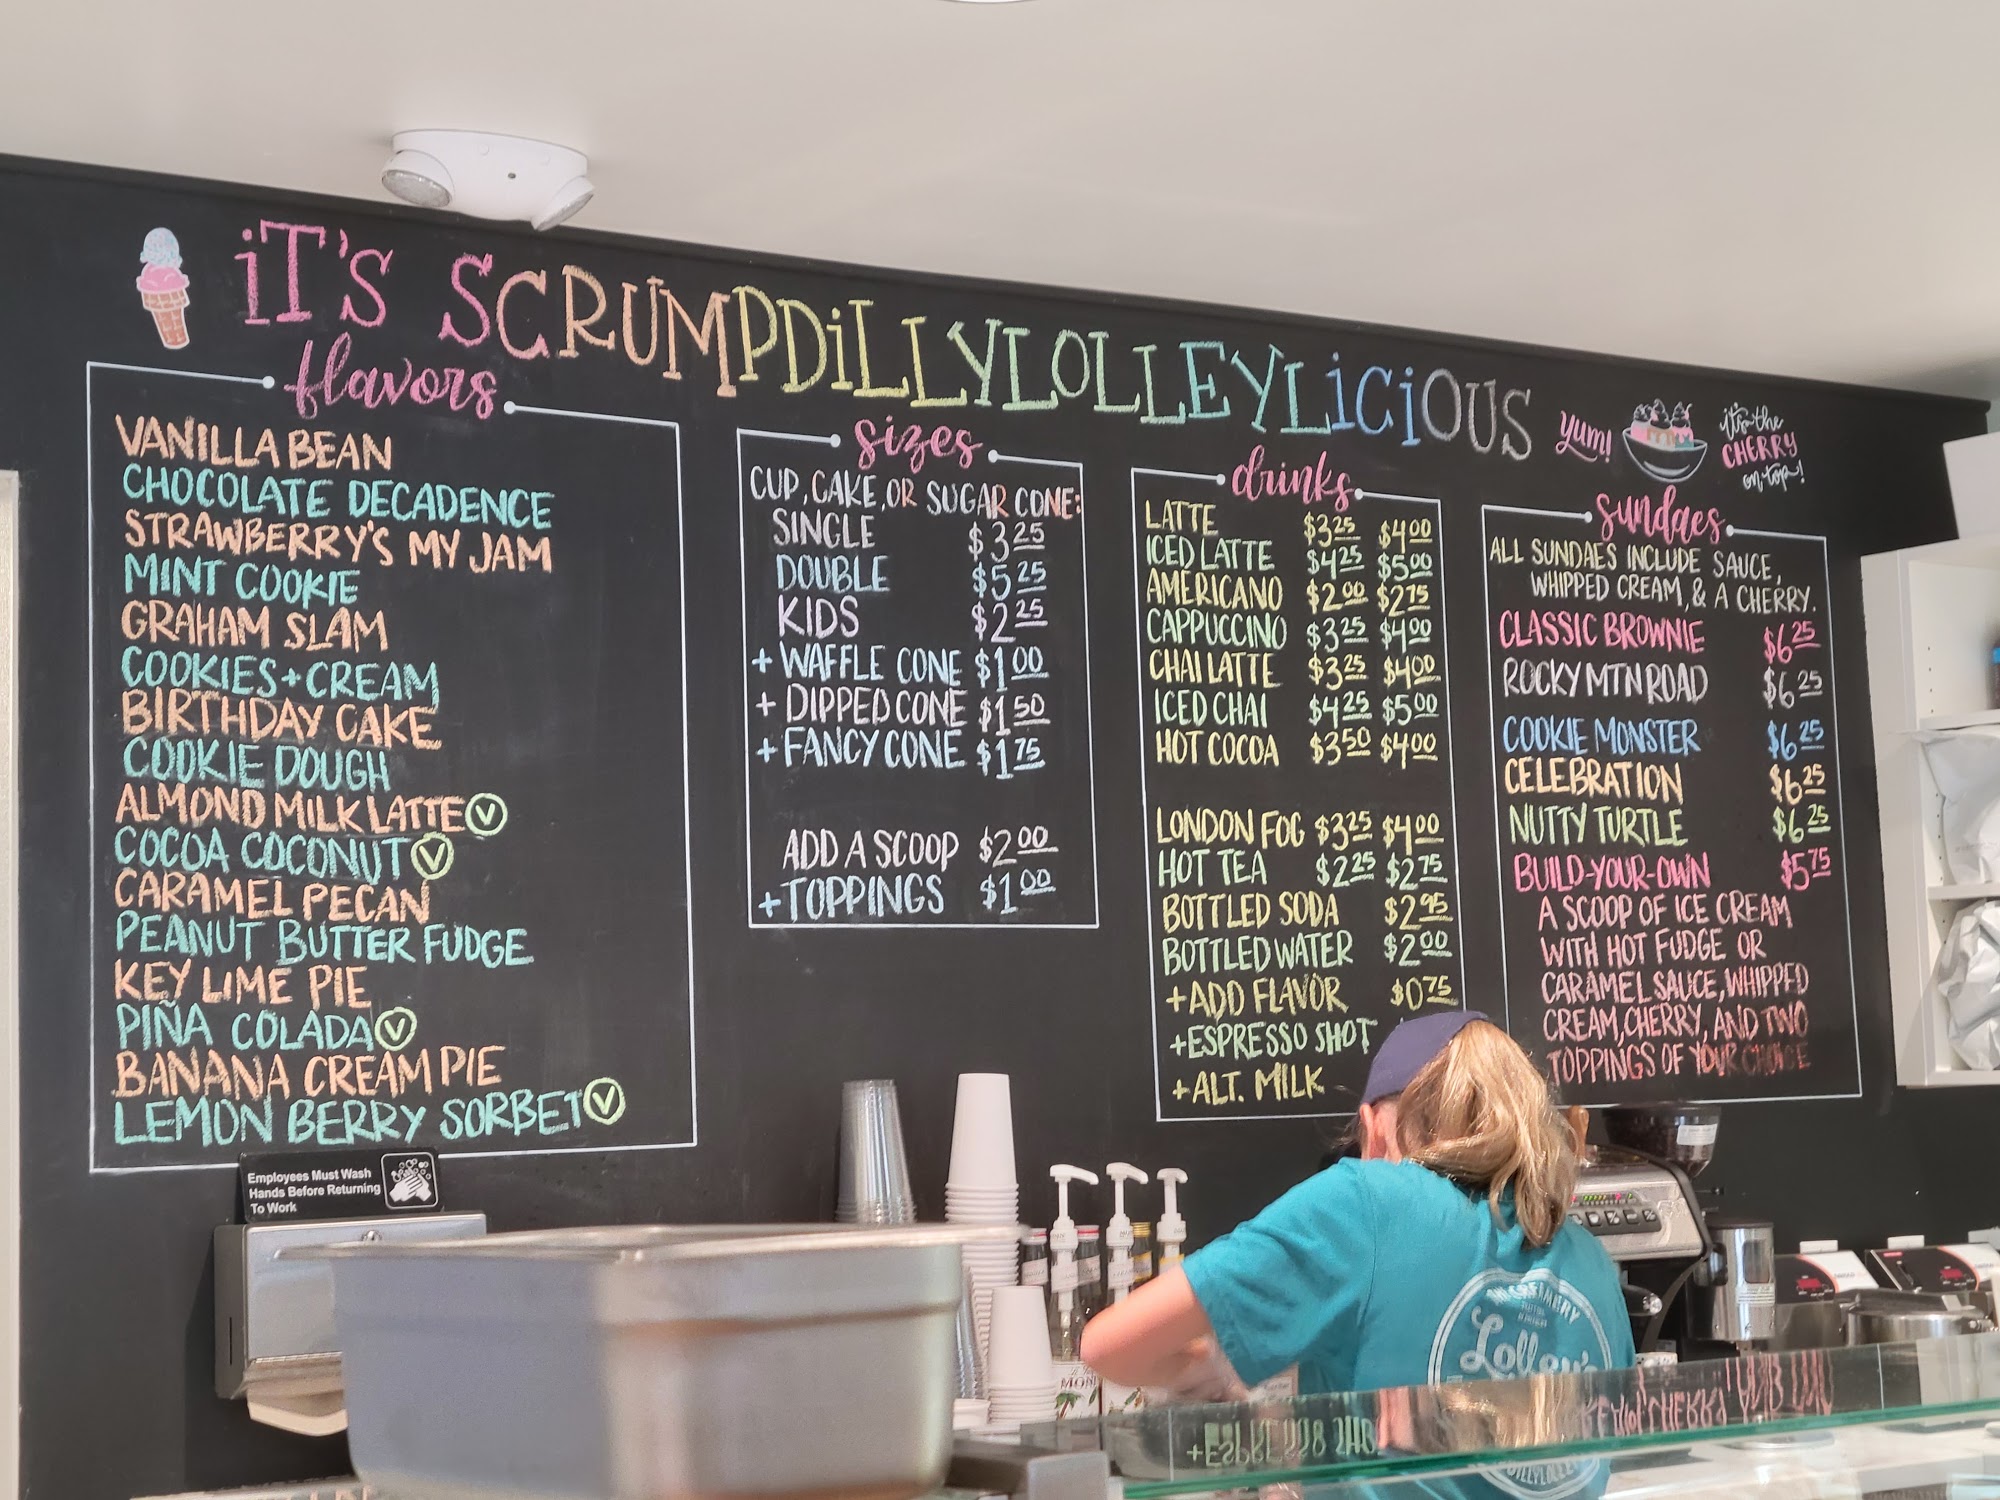 iT'S SCRUMPDiLLYLOLLEYLiCiOUS
Yum!
it's the
CHERRY
on top!
flavors
VANILLA BEAN
CHOCOLATE DECADENCE
STRAWBERRY'S MY JAM
MINT COOKIE
GRAHAM SLAM
COOKIES + CREAM
BIRTHDAY CAKE
COOKIE DOUGH
ALMOND MILK LATTE V
COCOA COCONUT V
CARAMEL PECAN
PEANUT BUTTER FUDGE
KEY LIME PIE
PIÑA COLADA V
BANANA CREAM PIE
LEMON BERRY SORBET V
sizes
CUP, CAKE, OR SUGAR CONE:
SINGLE $3.25
DOUBLE $5.25
KIDS $2.25
+ WAFFLE CONE $1.00
+ DIPPED CONE $1.50
+ FANCY CONE $1.75
ADD A SCOOP $2.00
+ TOPPINGS $1.00
drinks
LATTE $3.25 $4.00
ICED LATTE $4.25 $5.00
AMERICANO $2.00 $2.75
CAPPUCCINO $3.25 $4.00
CHAI LATTE $3.25 $4.00
ICED CHAI $4.25 $5.00
HOT COCOA $3.50 $4.00
LONDON FOG $3.25 $4.00
HOT TEA $2.25 $2.75
BOTTLED SODA $2.95
BOTTLED WATER $2.00
+ ADD FLAVOR $0.75
+ ESPRESSO SHOT
+ ALT. MILK
sundaes
ALL SUNDAES INCLUDE SAUCE,
WHIPPED CREAM, & A CHERRY.
CLASSIC BROWNIE $6.25
ROCKY MTN ROAD $6.25
COOKIE MONSTER $6.25
CELEBRATION $6.25
NUTTY TURTLE $6.25
BUILD-YOUR-OWN $5.75
A SCOOP OF ICE CREAM
WITH HOT FUDGE OR
CARAMEL SAUCE, WHIPPED
CREAM, CHERRY, AND TWO
TOPPINGS OF YOUR CHOICE
Employees Must Wash
Hands Before Returning
To Work
Lolley's